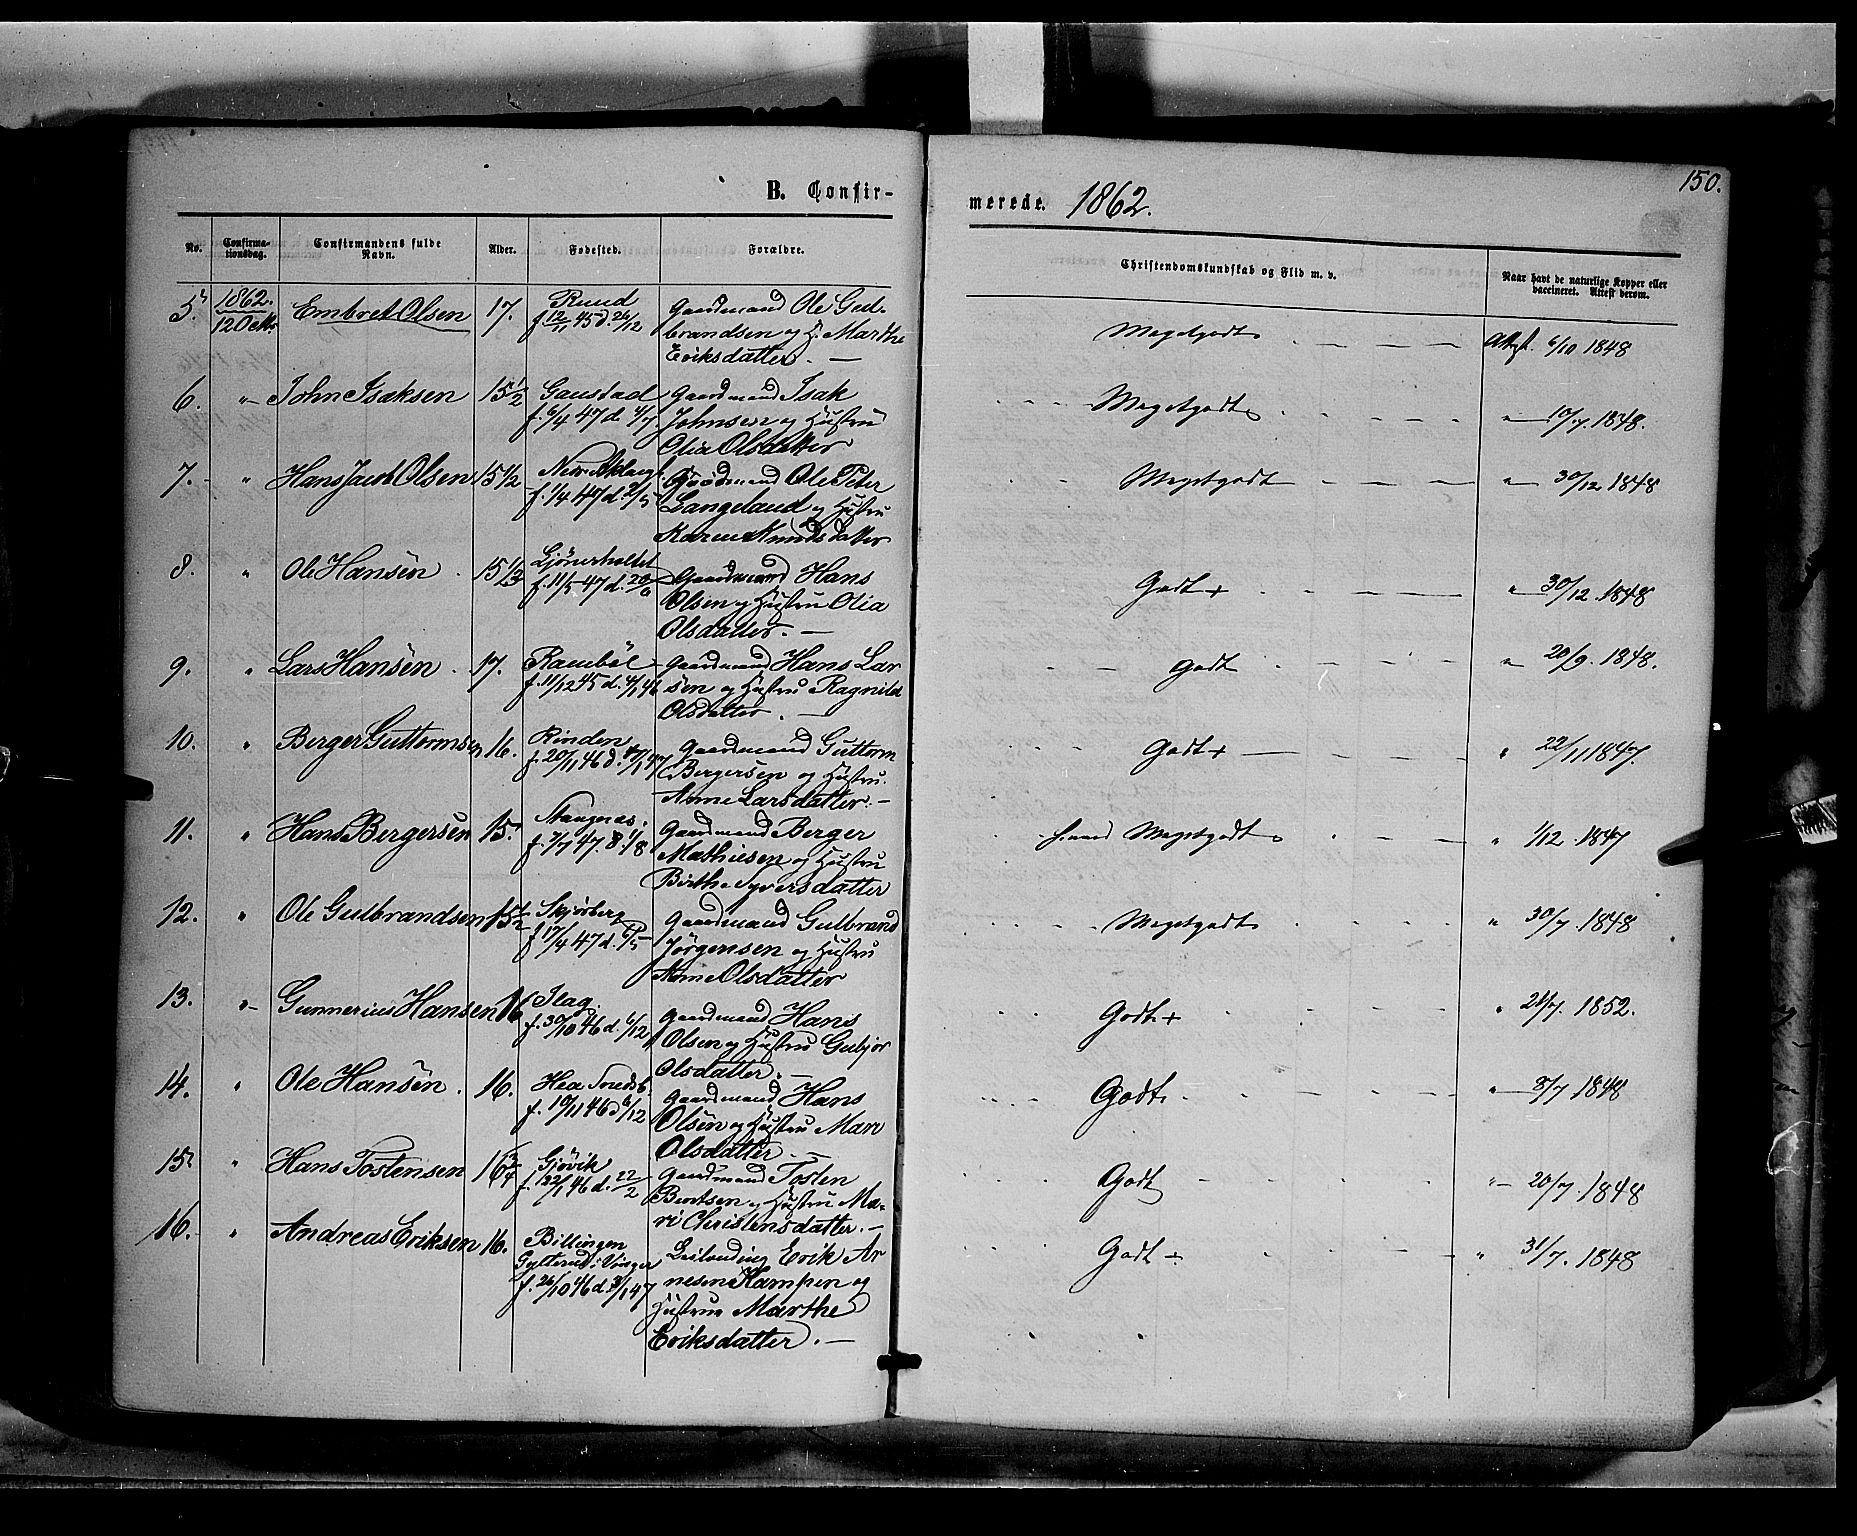 150.
B. Confir-
merede. 1862.
No.
Confirma-
tionsdag.
Confirmandens fulde
Navn.
Alder.
Fødested.
Forældre.
Christendomskundskab og Flid m. v.
Naar havt de naturlige Kopper eller
vaccineret. Attest derom.
5. 1862. 12 Octbr Embret Olsen 17. Ruud
f 12/11 45 d. 26/12
Gaardmand Ole Gul-
brandsen og H. Marthe
Eriksdatter. —
Megetgodt Attest. 6/10 1848
6. " John Isaksen 15 1/2 Gaustad
f. 6/1 47 d. 4/7
Gaardmand Isak
Johnsen og Hustru
Olia Olsdatter
Megetgodt " 10/7. 1848.
7. " Hans Jacob Olsen 15 1/2
f. 1/4 47 d. 2/5
Gaardmand Ole Peter
Langeland og Hustru
Karen Knudsdatter
Megetgodt " 30/12 1848
8. " Ole Hansen 15 1/2
f. 11/5 47 d. 20/6
Gaardmand Hans
Olsen og Hustru Olia
Olsdatter. —
Godt + " 30/12. 1848
9. " Lars Hansen 17. Rambøl
f. 11/12 45 d. 4/1 46
Gaardmand Hans Lar
sen og Hustru Ragnild
Olsdatter. —
Godt " 20/9. 1848.
10. " Berger Guttormsen 16. Rinden
f. 20/11 46 d.
Gaardmand Guttorm
Bergersen og Hustru
Anne Larsdatter. —
Godt + " 22/11 1847.
11. " Hans Bergersen 15.
f. 7/7 47. d. 1/8
Gaardmand Berger
Mathiesen og Hustru
Birthe Syversdatter
Megetgodt " 1/12. 1847
12. " Ole Gulbrandsen 15 1/2 Skjørberg
f 17/4 47 d.
Gaardmand Gulbrand
Jørgensen og Hustru
Anne Olsdatter
Megetgodt " 30/7. 1848
13. " Gunnerius Hansen 16
f. 30/10 46 d. 6/12
Gaardmand Hans
Olsen og Hustru Gubjør
Olsdatter. —
Godt + " 21/7. 1852.
14. " Ole Hansen. 16.
f. 19/11 46 d 6/12
Gaardmand Hans
Olsen og Hustru Mari
Olsdatter. —
Godt. " 8/7 1848
15. " Hans Tostensen 16 3/4 Gjøvik
f. 22/1 46 d. 22/2
Gaardmand Tosten
Berntsen og Hustru Ma-
ri Christensdatter. —
Godt " 20/7. 1848
16. " Andreas Eriksen 16. Billingen
i Vinger
f. 26/10 46 d. 3/1 47
Leilending Erik Ar
nesen Kampen og
Hustrue Marthe
Eriksdatter. —
Godt + " 31/7. 1848